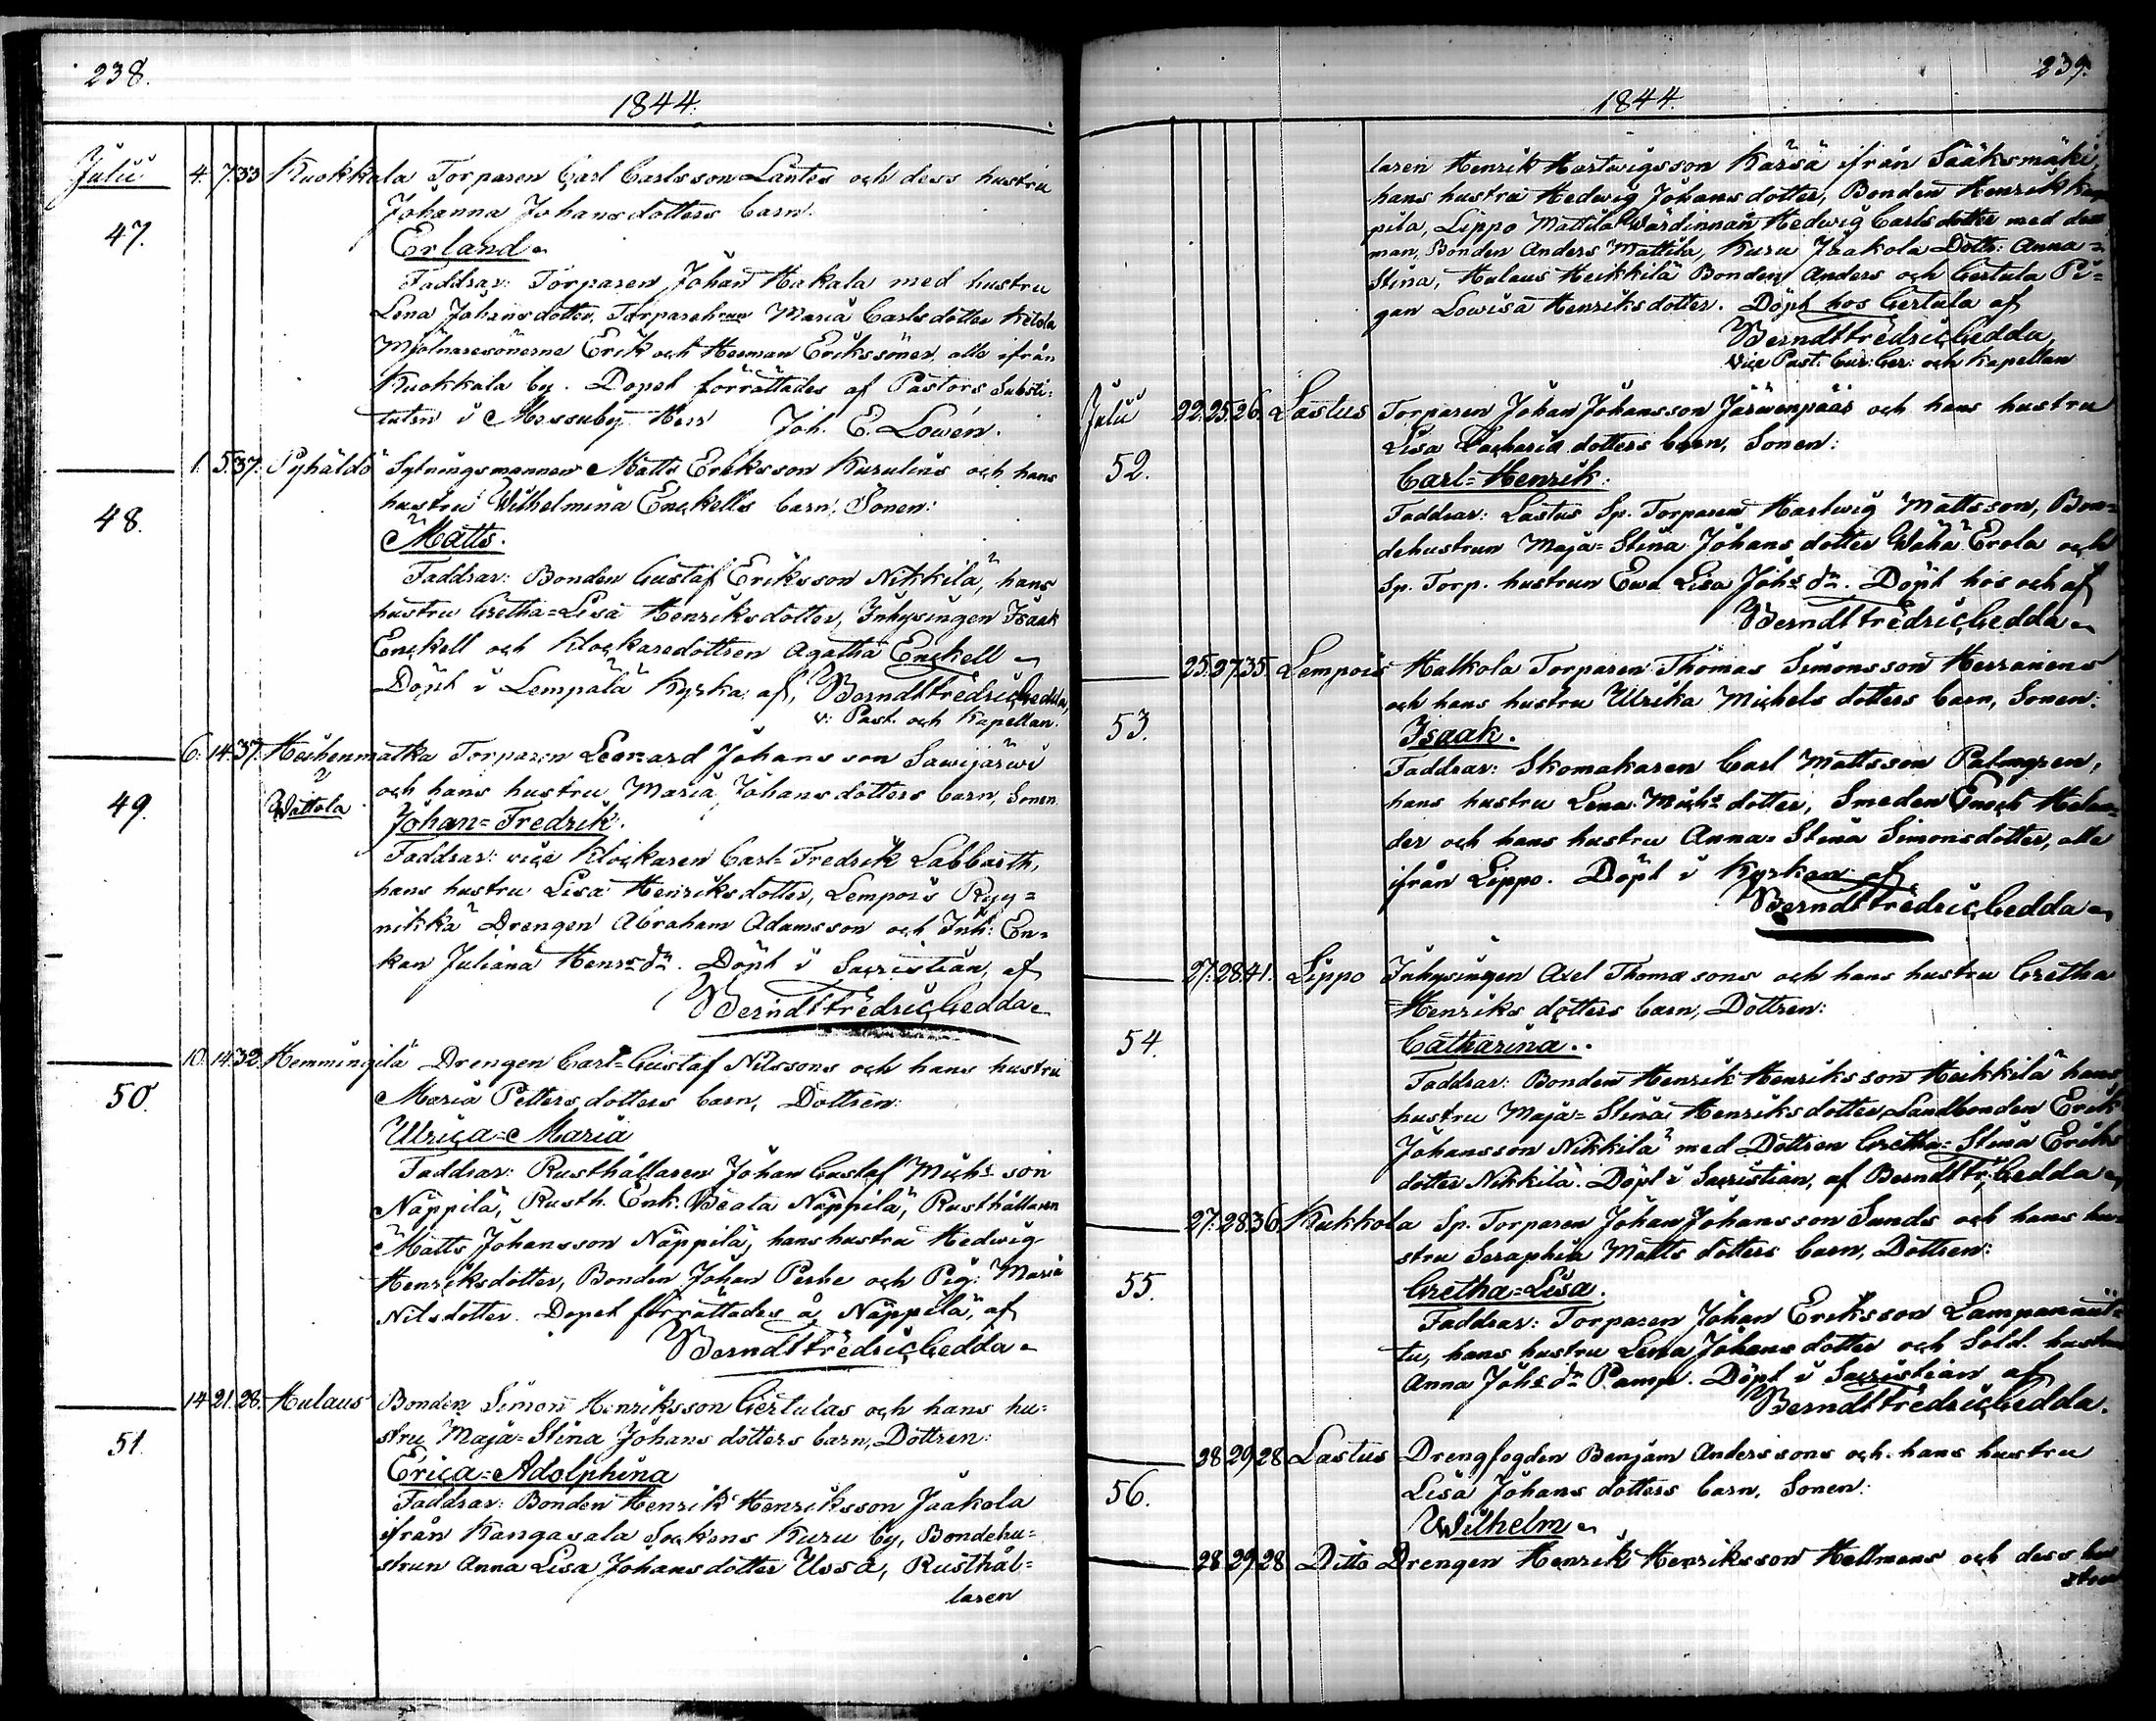 238.
1844.
Julii 4. 7. 33 Kuokkala Torparen Carl Carlsson Lántes och dess hustru
Johanna Johansdotters barn.
47. Erland
Faddrar: Torparen Johan Hakala med hustru
Lena Johansdotter, Torparehrun Maria Carlsdotter Ketola
Mjölnaresönerne Erik och Herman Erikssöner, alla ifrån
Kuokkala by. Dopet förrättades af Pastors Substi:
tuten i Messuby Herr Joh. E. Lowén.
1. 5. 37. Pyhäldö Sytningsmannen Matts Eriksson Kurulins och hans
hustru Wilhelmina Enckells barn, Sonen:
48. Matts.
Faddrar: Bonden Gustaf Eriksson Nikkilä, hans
hustru Gretha=Lisa Henriksdotter, Inhysingen Isaak
Enckell och Klockaredottren Agatha Enckell
Döpt i Lempälä Kyrka, af, Berndt Fredric Gedda,
v: Past. och Kapellan.
6. 14. 37. Moisenmatka Torparen Leonard Johansson Sawijärwi
och hans hustru Maria Johansdotters barn, Sonen
49. Wattola Johan=Fredrik.
Faddrar: vice Klockaren Carl=Fredrik Labbarth,
hans hustru Lisa Henriksdotter, Lempois Ryy=
nikkä Drengen Abraham Adamsson och Inh: En=
kan Juliana Henrsdr. Döpt i Sacristian, af
Berndt Fredric Gedda
10. 14. 32. Hemmingilä Drengen Carl=Gustaf Nilssons och hans hustru
Maria Pettersdotters barn, Dottren:
50. Ulrica=Maria
Faddrar: Rusthållaren Johan Gustaf Michsson
Näppilä, Rusth. Enk. Beata Näppilä, Rusthållaren
Matts Johansson Näppilä, hans hustru Hedwig
Henriksdotter, Bonden Johan Perhe och Pig: Maria
Nilsdotter. Dopet förrättades å Näppilä, af
Berndt Fredric Gedda
14 21. 28. Hulaus Bonden Simon Henriksson Gertulas och hans hu=
stru Maja=Stina Johansdotters barn, Dottren:
51. Erica=Adolphina
Faddrar: Bonden Henrik Henriksson Jaakola
ifrån Kangasala Sockens Kuru by, Bondehu=
strun Anna Lisa Johansdotter Ussa, Rusthål=
laren
239.
1844.
laren Henrik Hartwigsson Karsä ifrån Sääksmäki,
hans hustru Hedwig Johansdotter, Bonden Henrik
pila, Lippo Mattila Wärdinnan Hedwig Carlsdotter med dess
man, Bonden Anders Mattila, Kuru Jaakola Dottr: Anna=
Stina, Hulaus Heikkilä Bonden Anders och Gertula Pi=
gan Lowisa Henriksdotter. Döpt hos Gertula af
Berndt Fredric Gedda,
Vice Past: Cur: Ger: och Kapellan
Julii 22. 25. 26. Lastus Torparen Johan Johansson Järwenpääs och hans hustru
Lisa Zacharia dotters barn, Sonen:
52. Carl=Henrik.
Faddrar: Lastus Sp. Torparen Hartwig Mattsson, Bon=
dehustrun Maja=Stina Johansdotter Wähä Erola och
Sp. Torp. hustrun Ewa Lisa Johs dr. Döpt hos och af
Berndt Fredric Gedda
25. 27. 35. Lempois Halkola Torparen Thomas Simonsson Herranens
och hans hustru Ulrika Michelsdotters barn, Sonen:
53. Isaak.
Faddrar: Skomakaren Carl Mattsson Palmgren,
hans hustru Lena Michs dotter, Smeden Enoch Helan=
der och hans hustru Anna=Stina Simonsdotter, alla
ifrån Lippo. Döpt i Kyrkan af
Berndt Fredric Gedda
27. 28. 41. Lippo Inhysingen Axel Thomæ sons och hans hustru Gretha
Henriks dotters barn, Dottren:
54. Catharina.
Faddrar: Bonden Henrik Henriksson Heikkilä hans
hustru Maja=Stina Henriksdotter, Landbonden Erik
Johansson Nikkilä med Dottren Gretha=Stina Eriks
dotter Nikkilä. Döpt i Sacristian, af Berndt Fr. Gedda
27. 28. 36. Kukkola Sp. Torparen Johan Johansson Sunds och hans hu=
stru Seraphia Matts dotters barn, Dottren:
55. Gretha=Lisa.
Faddrar: Torparen Johan Eriksson Lampannuit=
tu, hans hustru Lena Johansdotter och Sold. hustrun
Anna Johs dr Pamp. Döpt i Sacristian af
Berndt Fredric Gedda.
28 29 28 Lastus Drengfogden Benjam Anderssons och hans hustru
Lisa Johans dotters barn, Sonen:
56. Wilhelm
28 29 28 Ditto Drengen Henrik Henriksson Hellmens och dess hu
strus